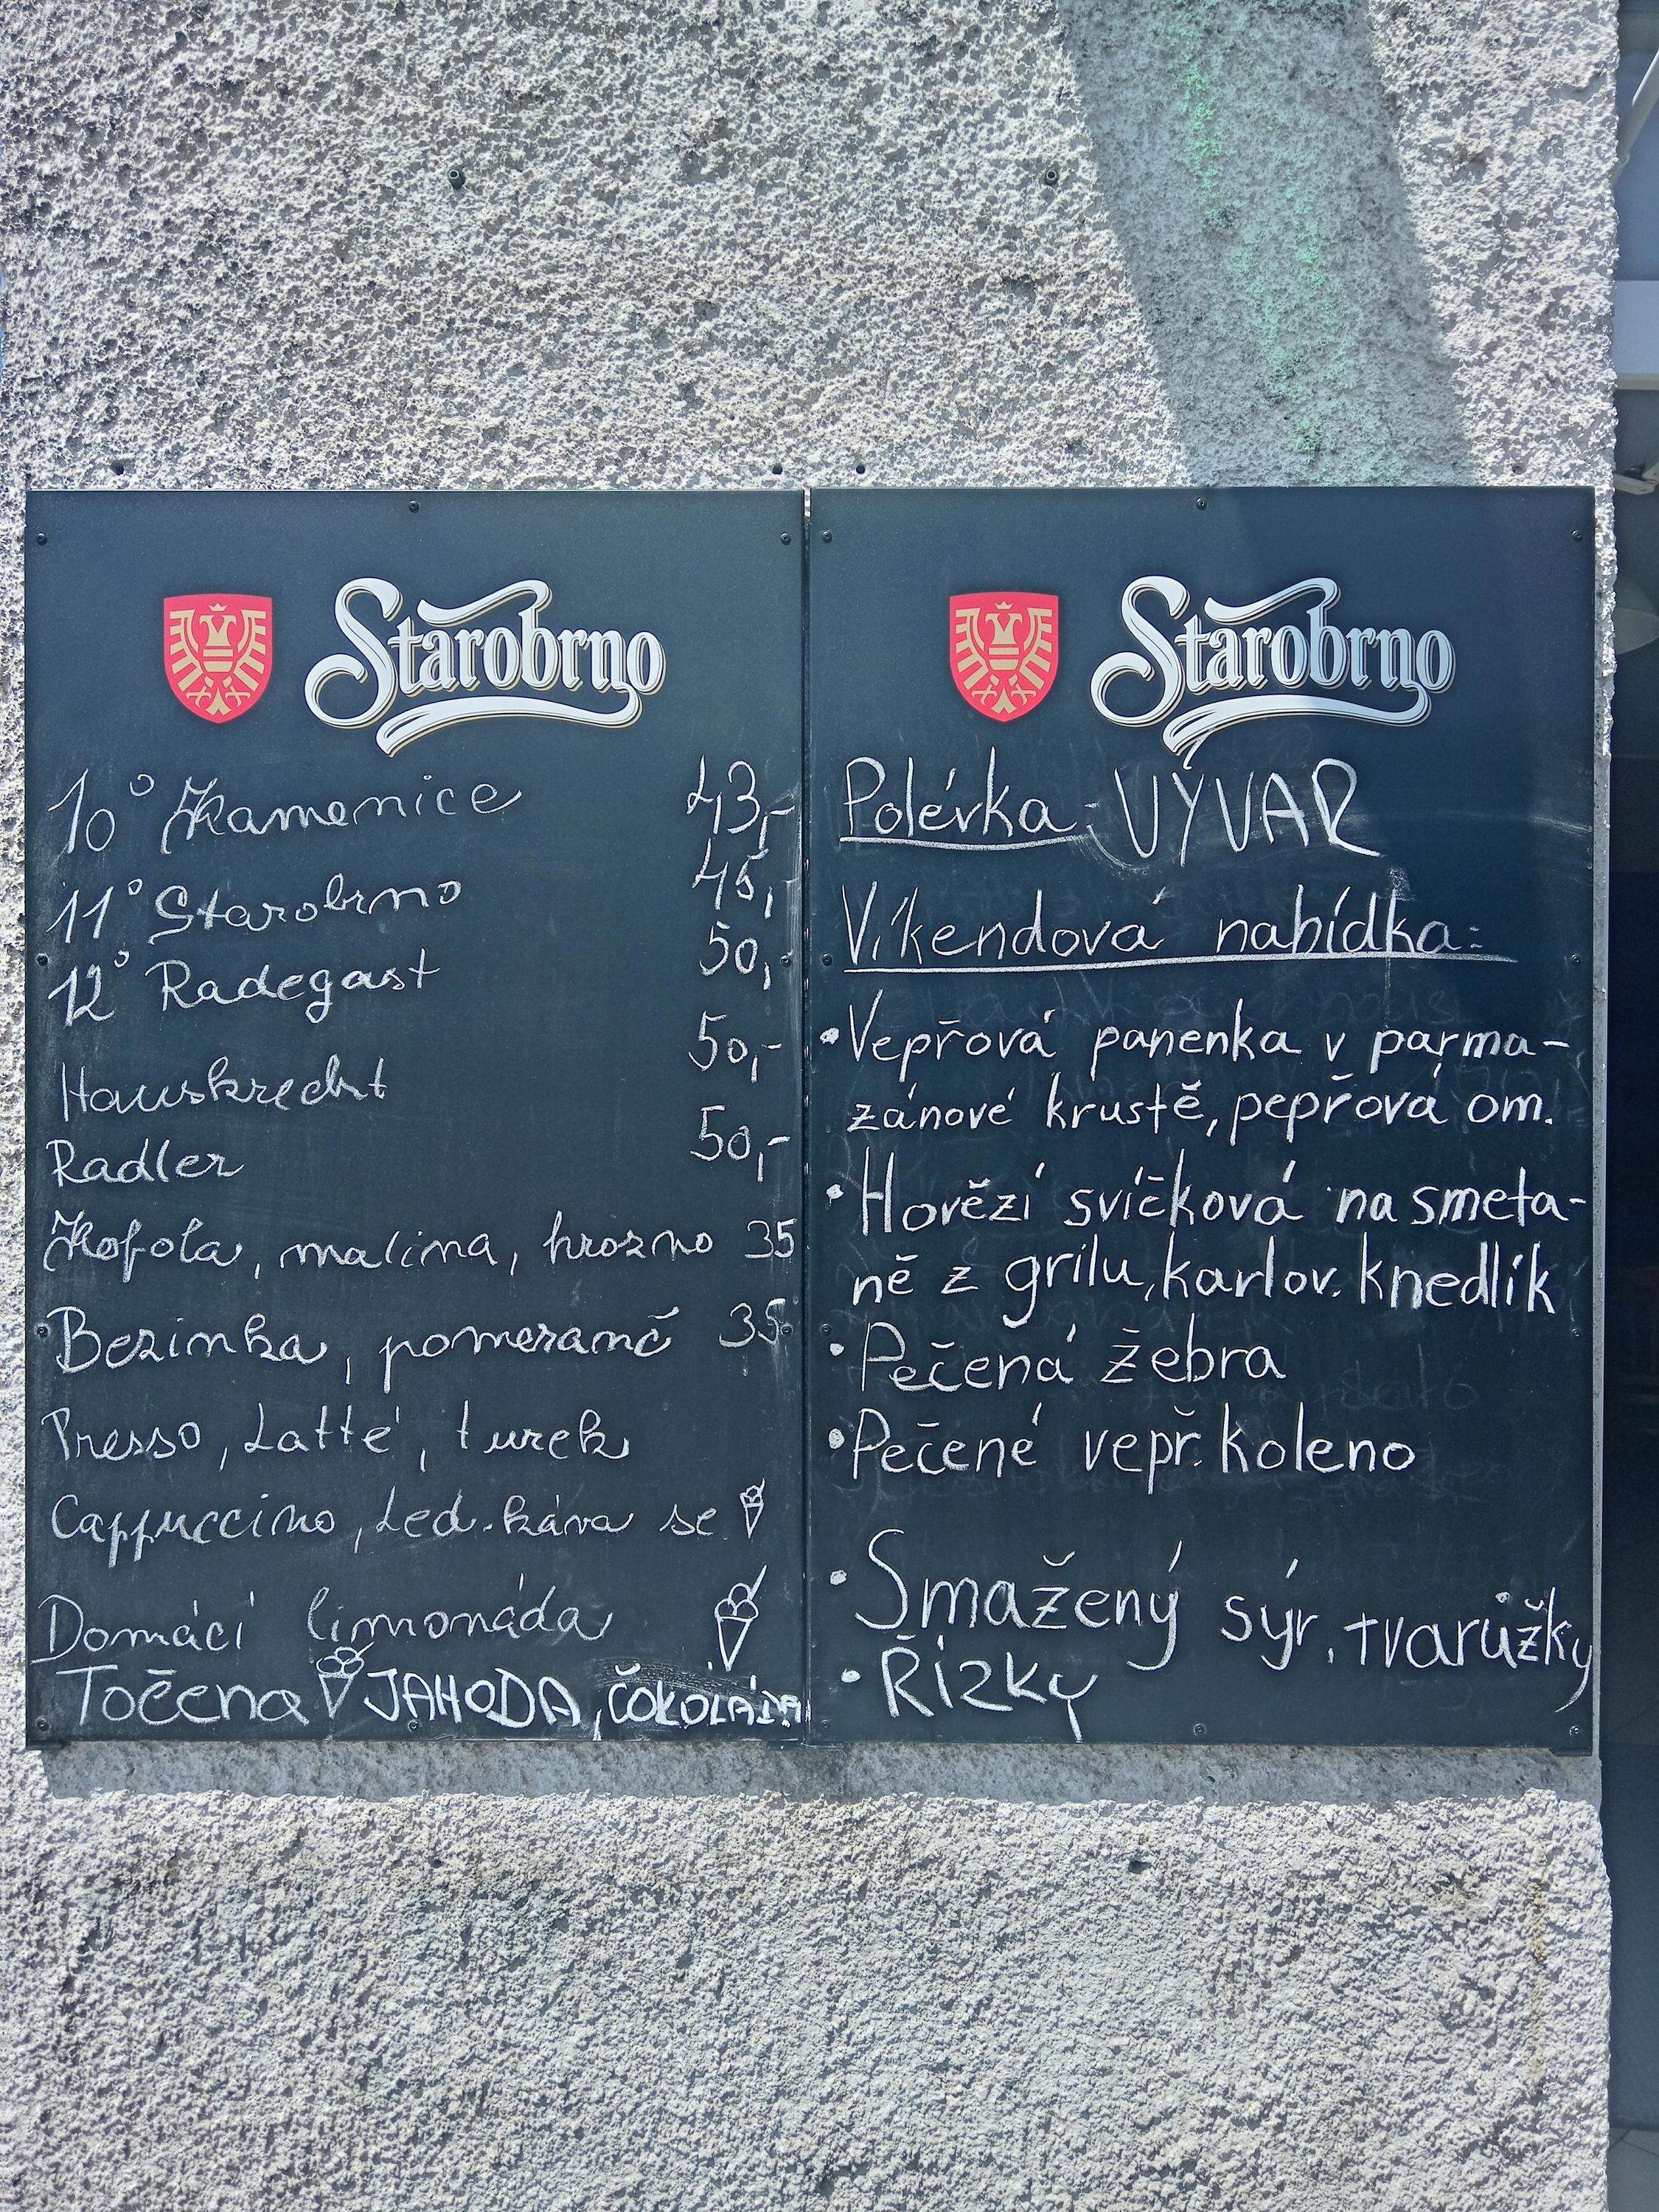 Starobrno
10° Kamenice 43,-
11° Starobrno 45,-
12° Radegast 50,-
Hausknecht 50,-
Radler 50,-
Kofola, malina, hrozno 35
Bezinka, pomeranč 35
Presso, Latté, turek
Cappuccino, Led. káva se
Domácí limonáda
Točená JAHODA, ČOKOLÁDA
Starobrno
Polévka: VÝVAR
Víkendová nabídka:
• Vepřová panenka v parma-
zánové krustě, pepřová om.
• Hovězí svíčková na smeta-
ně z grilu, karlov. knedlík
• Pečená žebra
• Pečené vepř. koleno
• Smažený sýr, tvarůžky
• Řízky